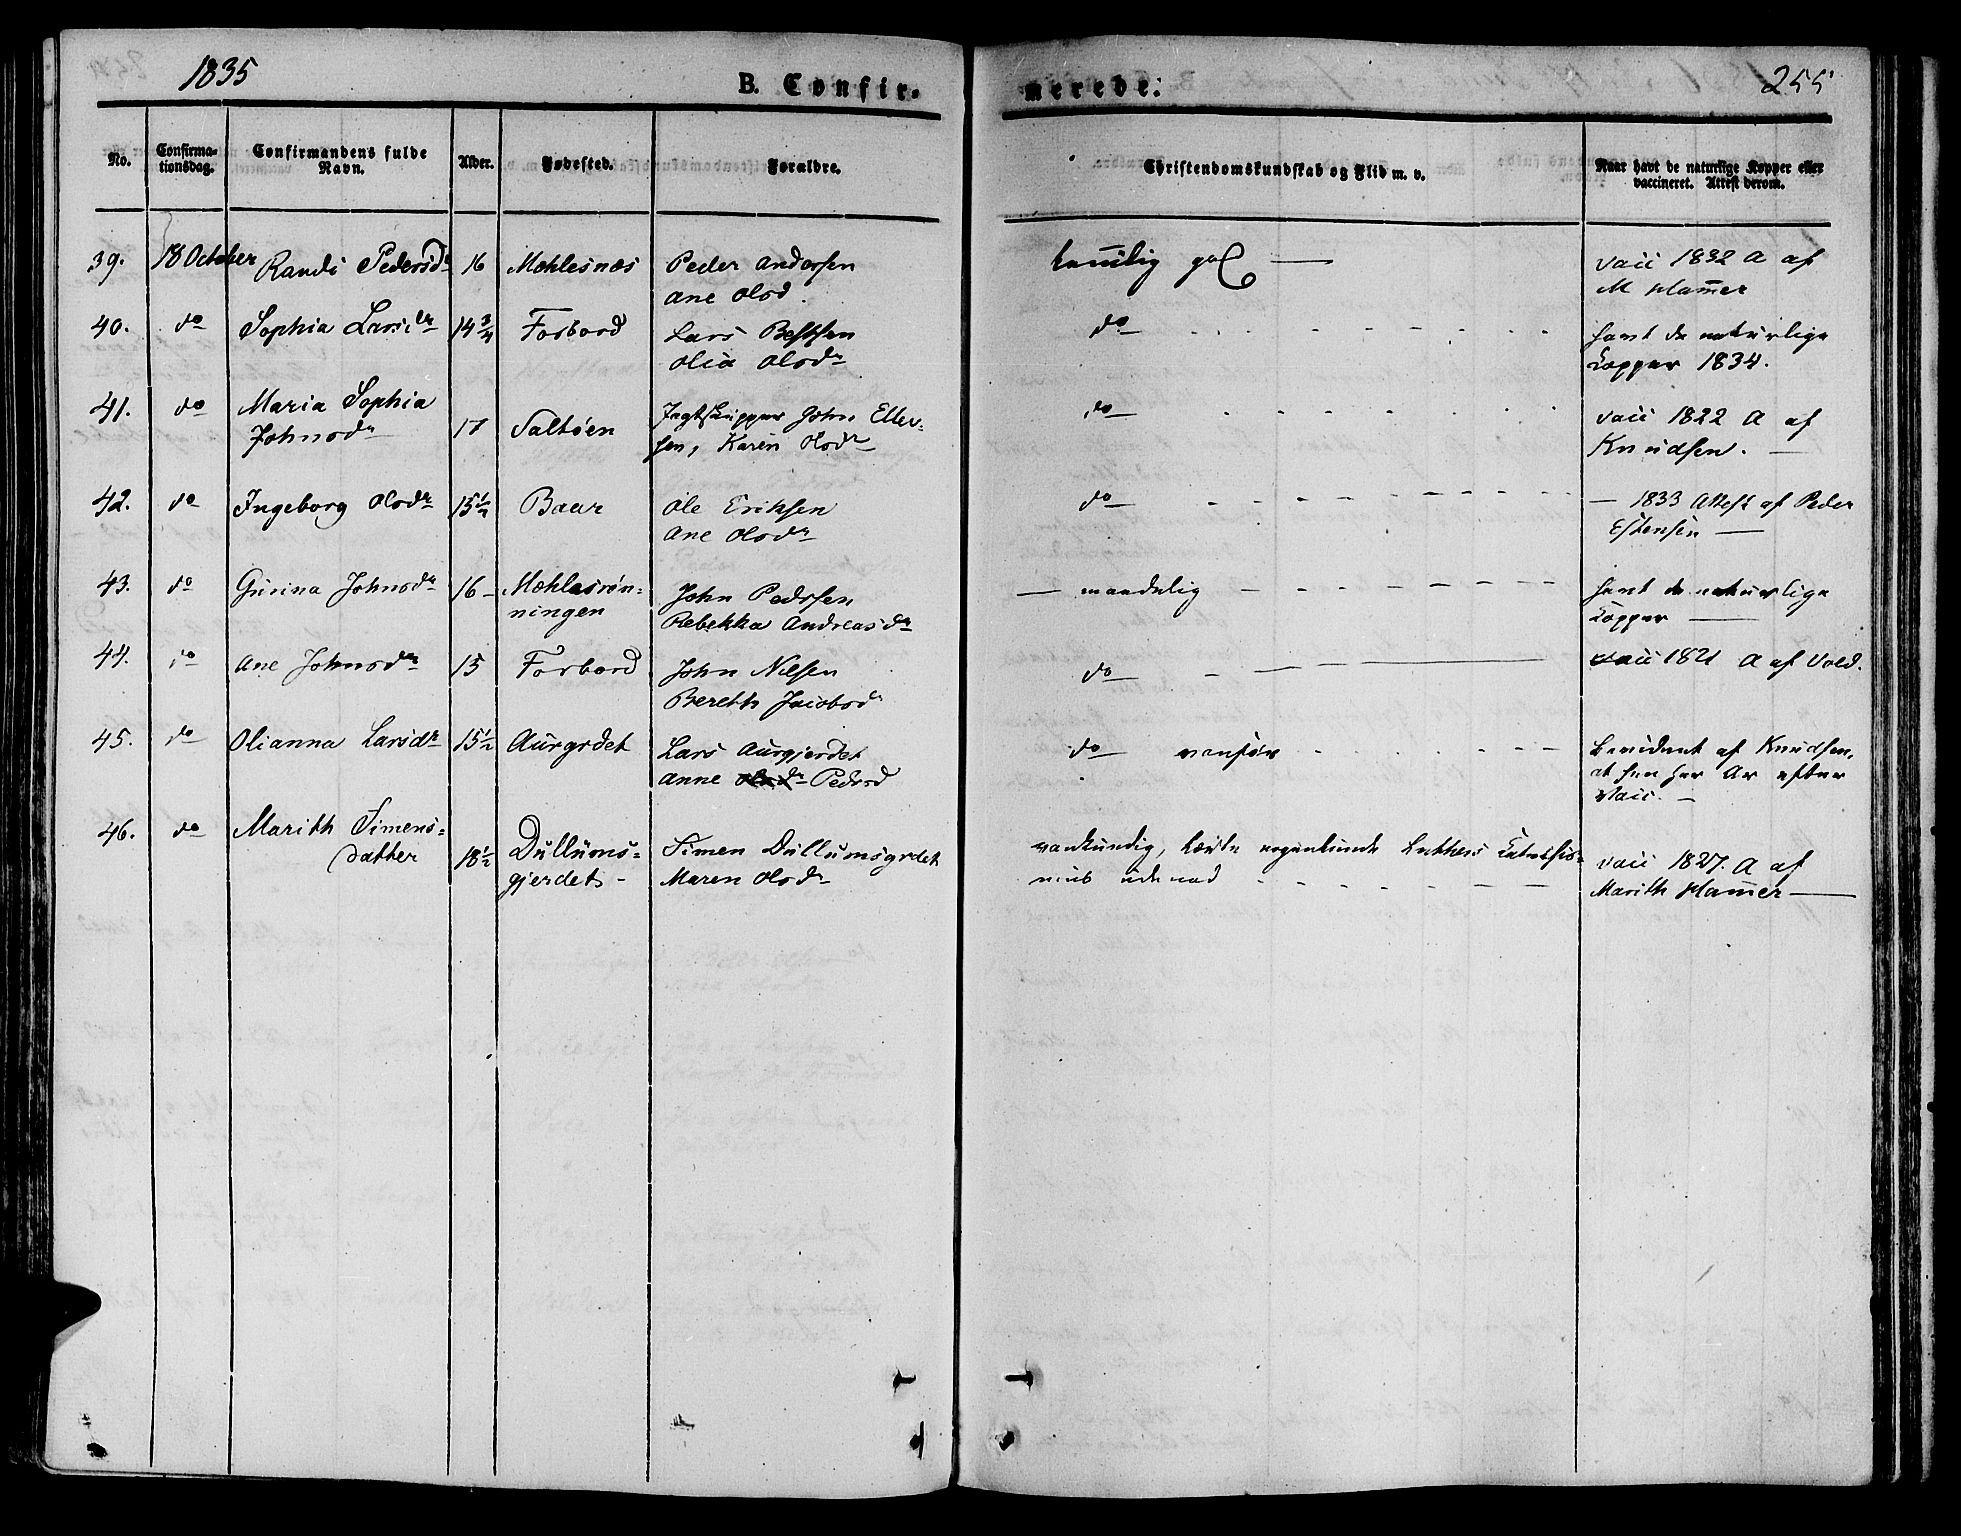 1835
B. Confir-
merede.
255
No.
Confirma-
tionsdag.
Confirmandens fulde
Navn.
Alder.
Fødested.
Forældre.
Christendomskundskab og Flid m. v.
Naar havt de naturlige Kopper eller
vaccineret. Attest derom.
39. 18 October Randi Pedersdr 16 Mæhlesnæs Peder Andersen
Ane Olsd.
temlig god
vacc 1832 A af
M Hammer
40. do Sophia Larsdr 14 3/4 Forbord Lars
Olia Olsdr
do
havt de naturlige
Kopper 1834.
41. do Maria Sophia
Johnsdr 17 Saltøen Jagtskipper John Eller-
sen, Karen Olsdr
do
vacc 1822 A af
Knudsen.
42. do Ingeborg Olsdr 15 1/2 Baar Ole Eriksen
Ane Olsdr
do
— 1833 Attest af Peder
Estensen
43. do Gurina Johnsdr 16 Mæhlesrøn-
ningen John Pedersen
Rebekka Andreasdr
— maadelig
havt de naturlige
Kopper
44. do Ane Johnsdr 15 Forbord John Nilsen
Bereth Jacobsdr
do
vacc 1821 A af Vold.
45. do Olianna Larsdr 15 1/2 Aurgrdet Lars Aurgjerdet
Anne Olsdr Pedersd
do vanfør
bevidnet af Knudsen,
at hun har Ar efter
Vacc.
46. do Marith Simens-
datter 18 1/2 Dullums-
gjerdets Simen Dullumsgrdet
Maren Olsdr
vankundig, lærte Luthers Katechis-
mus udenad
vacc 1827. A af
Marith Hammer